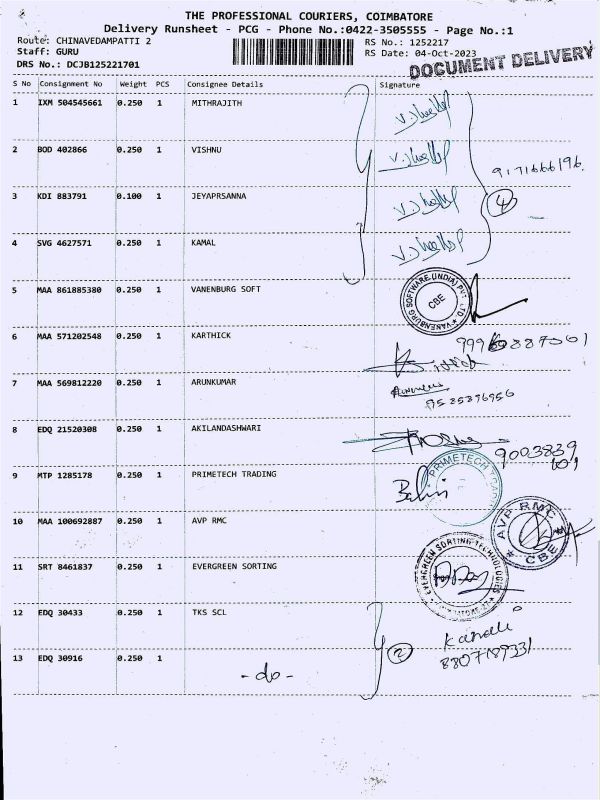 THE PROFESSIONAL COURIERS, COIMBATORE
Delivery Runsheet - PCG - Phone No.:0422-3505555 - Page No.:1
Route: CHINAVEDAMPATTI 2 RS No.: 1252217
Staff: GURU RS Date: 04-Oct-2023
DRS No.: DCJB125221701 DOCUMENT DELIVERY
S No Consignment No Weight PCS Consignee Details Signature
1 IXM 504545661 0.250 1 MITHRAJITH
2 BOD 402866 0.250 1 VISHNU
9171666196.
3 KDI 883791 0.100 1 JEYAPRSANNA
4
4 SVG 4627571 0.250 1 KAMAL
5 MAA 861885380 0.250 1 VANENBURG SOFT
VANENBURG SOFTWARE (INDIA) PVT. LTD
CBE
6 MAA 571202548 0.250 1 KARTHICK
7 MAA 569812220 0.250 1 ARUNKUMAR
8 EDQ 21520308 0.250 1 AKILANDASHWARI
9003839
101
9 MTP 1285178 0.250 1 PRIMETECH TRADING
PRIMETECH
10 MAA 100692887 0.250 1 AVP RMC
AVP RMC
CBE
11 SRT 8461837 0.250 1 EVERGREEN SORTING
EVERGREEN SORTING TECHNOLOGIES
12 EDQ 30433 0.250 1 TKS SCL
2
13 EDQ 30916 0.250 1
-do-